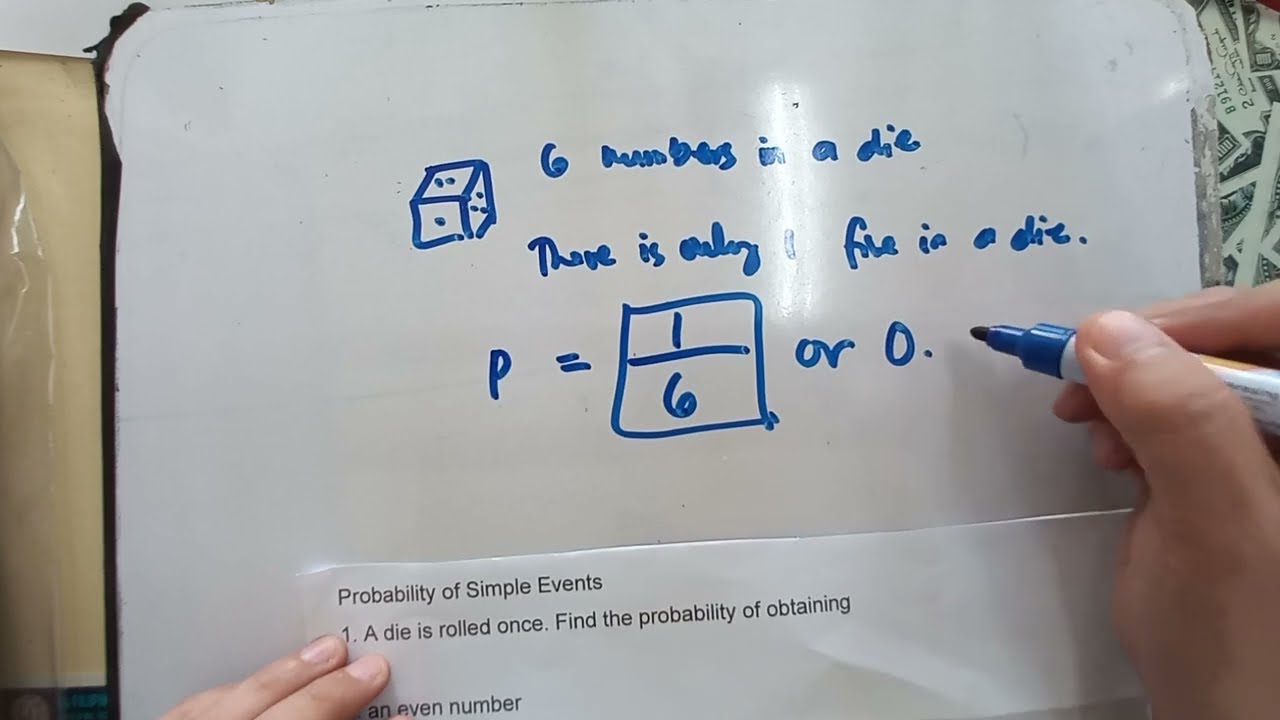 6 numbers in a die
There is only 1 five in a die.
P = 1/6 or 0.
Probability of Simple Events
1. A die is rolled once. Find the probability of obtaining
an even number